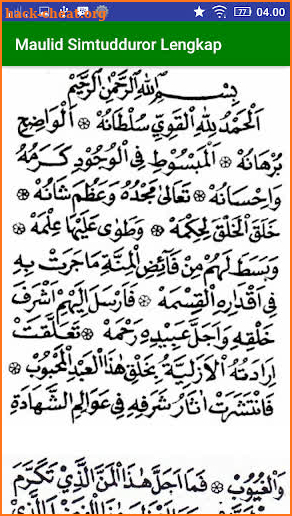 hack-cheat.org
77 04.00
Maulid Simtudduror Lengkap
بِسْمِ اللهِ الرَّحْمٰنِ الرَّحِيْمِ
اَلْحَمْدُ لِلّٰهِ الْقَوِيِّ سُلْطَانُهْ ۞ اَلْوَاضِحِ
بُرْهَانُهْ ۞ اَلْمَبْسُوْطِ فِى الْوُجُوْدِ كَرَمُهُ
وَاِحْسَانُهْ ۞ تَعَالَى مَجْدُهُ وَعَظُمَ شَانُهْ ۞
خَلَقَ الْخَلْقَ لِحِكْمَهْ ۞ وَطَوَى عَلَيْهَا عِلْمَهْ ۞
وَبَسَطَ لَهُمْ مِنْ فَائِضِ الْمِنَّةِ مَا جَرَتْ بِهِ
فِى اَقْدَارِهِ الْقِسْمَهْ ۞ فَاَرْسَلَ اِلَيْهِمْ اَشْرَفَ
خَلْقِهِ وَاَجَلَّ عَبِيْدِهِ رَحْمَهْ ۞ تَعَلَّقَتْ
اِرَادَتُهُ الْاَزَلِيَّةُ بِخَلْقِ هٰذَا الْعَبْدِ الْمَحْبُوْبِ ۞
فَانْتَشَرَتْ اٰثَارُ شَرَفِهِ فِى عَوَالِمِ الشَّهَادَةِ
وَالْغُيُوْبِ ۞ فَمَا اَجَلَّ هٰذَا الْمَنَّ الَّذِيْ تَكَرَّمَ
hack-cheat.org